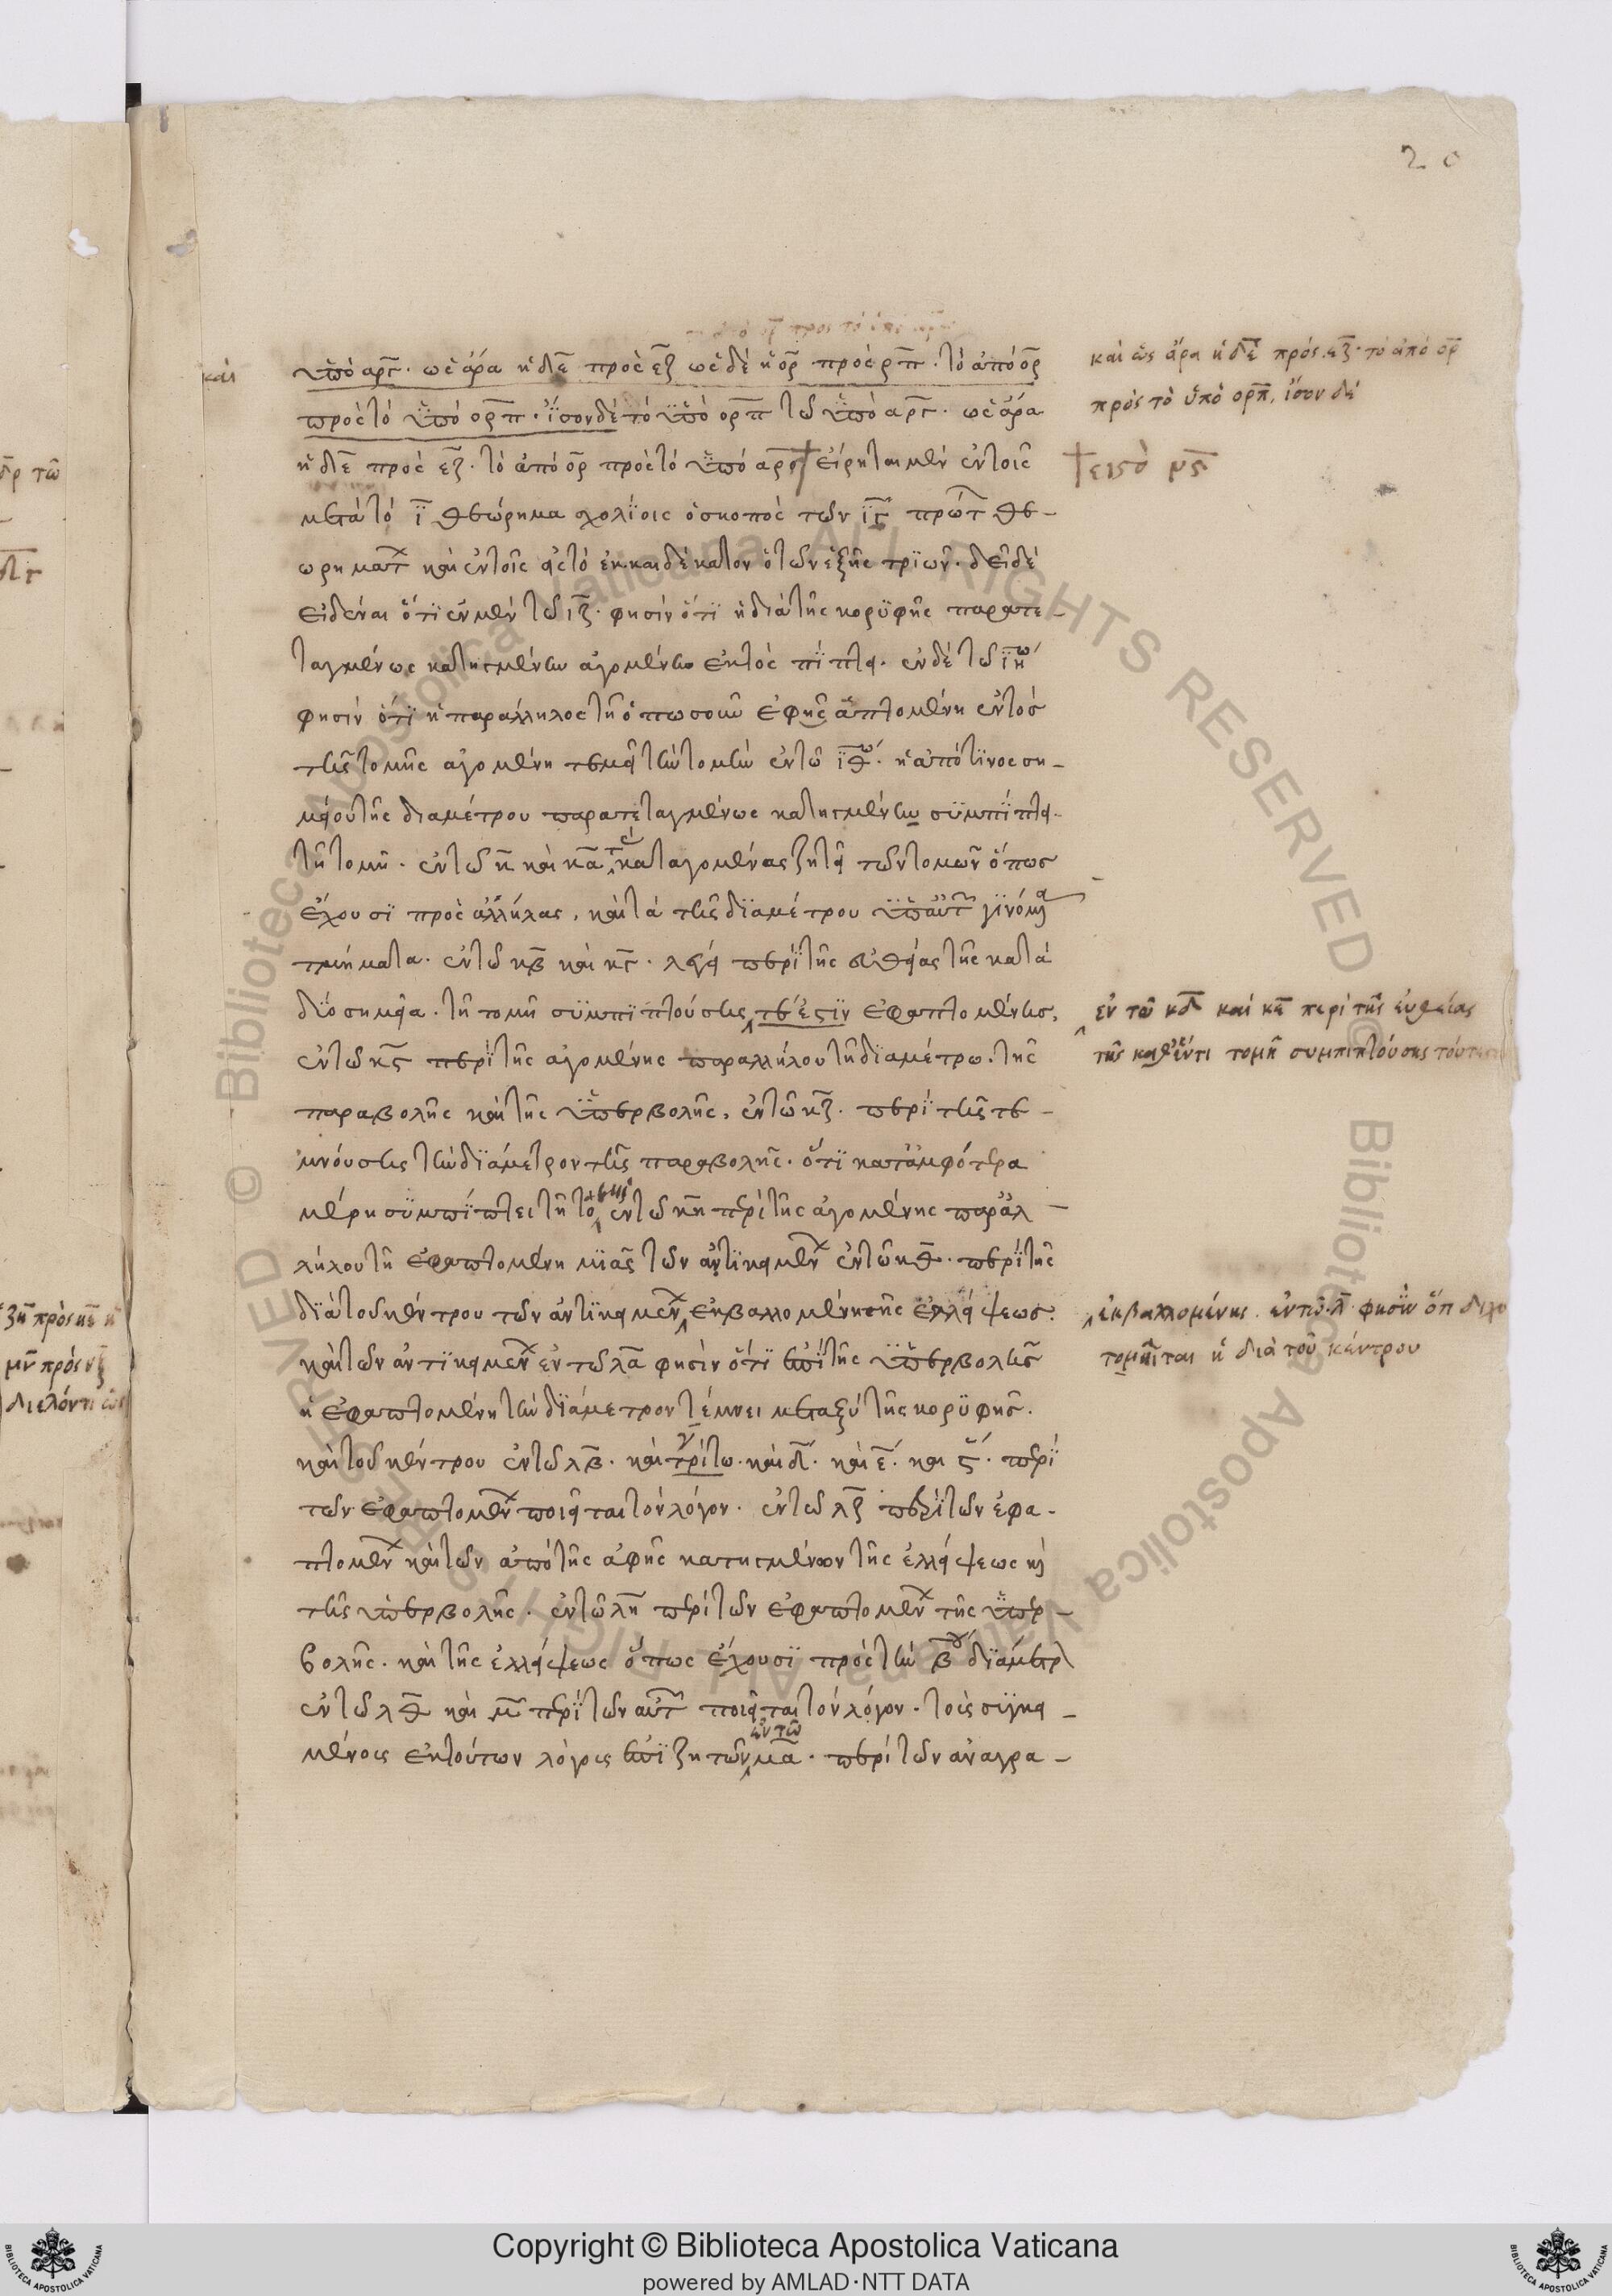 20
καὶ
ὑπὸ αρς· ὡς ἄρα ἡ δε πρὸς εζ ὡς δὲ ἡ ορ πρὸς ρπ· τὸ ἀπὸ ορ
πρὸς τὸ ὑπὸ ορπ· ἴσον δὲ τὸ ὑπὸ ορπ τῶ ὑπὸ αρς· ὡς ἄρα
ἡ δε πρὸς εζ· τὸ ἀπὸ ορ πρὸς τὸ ὑπὸ αρς εἴρηται μὲν ἐν τοῖς
μετὰ τὸ ι θεώρημα σχολίοις ὁ σκοπὸς τῶν ιγ πρώτ θε-
ωρηματ καὶ ἐν τοῖς εἰς τὸ ἑκκαιδέκατον ὁ τῶν ἑξῆς τριῶν· δεῖ δὲ
εἰδέναι ὅτι ἐν μὲν τῶ ιζ· φησὶν ὅτι ἡ διὰ τῆς κορυφῆς παρατε-
ταγμένως κατηγμένην ἀγομένη ἐκτὸς πίπτει· ἐν δὲ τῶ ιηω
φησὶν ὅτι ἡ παράλληλος τῆ ὁπωσοῦν ἐφῆς ἁπτομένη ἐντός
τῆς τομῆς ἀγομένη τεμεῖ τὴν τομὴν ἐν τῶ ιθω· ἡ ἀπό τινος ση-
μείου τῆς διαμέτρου παρατεταγμένως κατηγμένην συμπίπτει
τῆ τομῆ· ἐν τῶ κ καὶ κα καταγομένας ζητεῖ τῶν τομῶν ὅπως
ἔχουσι πρὸς ἀλλήλας, καὶ τὰ τῆς διαμέτρου ὑπ αὐτ γινόμα
τμήματα· ἐν τῶ κβ καὶ κγ· λέγει περὶ τῆς εὐθείας τῆς κατὰ
δύο σημεῖα· τῆ τομῆ συμπιπτούσης τέ ἐστιν ἐφαπτομένης,
ἐν τῶ κς περὶ τῆς ἀγομένης παραλλήλου τῆ διαμέτρω· τῆς
παραβολῆς καὶ τῆς ὑπερβολῆς, ἐν τῶ κζ· περὶ τῆς τε-
μνούσης τὴν διάμετρον τῆς παραβολῆς· ὅτι κατ ἀμφότερα
μέρη συμπίπτει τῆ το ἐν τῶ κη περὶ τῆς ἀγομένης παραλ-
λήλου τῆ ἐφαπτομένη μιᾶς τῶν ἀντικειμεν ἐν τῶ κθ· περὶ τῆς
διὰ τοῦ κέντρου τῶν ἀντικειμεν ἐκβαλλομένης τῆς ἐλλείψεως·
καὶ τῶν ἀντικειμεν ἐν τῶ λα φησὶν ὅτι ἐπὶ τῆς ὑπερβολῆς
ἡ ἐφαπτομένη τὴν διάμετρον τέμνει μεταξὺ τῆς κορυφῆς·
καὶ τοῦ κέντρου ἐν τῶ λβ· καὶ τρίτω· καὶ δ· καὶ ε· καὶ ς· περὶ
τῶν ἐφαπτομεν ποιεῖται τὸν λόγον· ἐν τῶ λζ περὶ τῶν ἐφα-
πτομεν καὶ τῶν ἀπὸ τῆς ἀφῆς κατηγμένων τῆς ἐλλείψεως καὶ
τῆς ὑπερβολῆς· ἐν τῶ λη περὶ τῶν ἐφαπτομεν τῆς ὑπερ-
βολῆς· καὶ τῆς ἐλλείψεως ὅπως ἔχουσι πρὸς τὴν β διάμετρ
ἐν τῶ λθ καὶ μ περὶ τῶν αὐτ ποιεῖται τὸν λόγον· τοὺς συγκει-
ἐν τῶ
μένους ἐκ τούτων λόγους ἐπιζητῶν μα· περὶ τῶν ἀναγρα-
καὶ ὡς ἄρα ἡ δε πρὸς εζ· τὸ ἀπὸ ορ
πρὸς τὸ ὑπὸ ορπ, ἴσον δέ
εἰς τὸ
ἐν τῶ κδ καὶ κε περὶ τῆς εὐθείας
τῆς καθ ἕν τι τομῆ συμπιπτούσης
ἐκβαλλομένης. ἐν τῶ λ φησὶν ὅτι διχο
τομηεῖται ἡ διὰ τοῦ κέντρου
πρὸς κε
μν πρὸς νξ
διελόντι ὡς
Copyright © Biblioteca Apostolica Vaticana
powered by AMLAD·NTT DATA
© Biblioteca Apostolica Vaticana ALL RIGHTS RESERVED